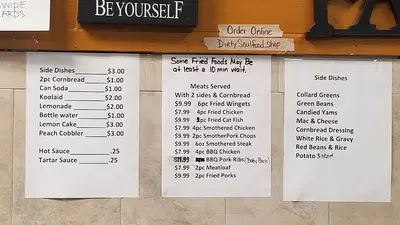 WIPE
CARDS
BE YOURSELF
Order Online
DirtySoulfood.shop
Side Dishes $3.00
2pc Cornbread $1.00
Can Soda $1.00
Koolaid $2.00
Lemonade $2.00
Bottle water $1.00
Lemon Cake $3.00
Peach Cobbler $3.00
Hot Sauce .25
Tartar Sauce .25
Some Fried Foods May Be
at least a 10 min wait.
Meats Served
With 2 sides & Cornbread
$9.99 6pc Fried Wingets
$7.99 4pc Fried Chicken
$9.99 2pc Fried Cat Fish
$7.99 4pc Smothered Chicken
$9.99 2pc SmotherPork Chops
$9.99 6oz Smothered Steak
$7.99 4pc BBQ Chicken
BBQ Pork Ribs (Baby Back)
$7.99 2pc Meatloaf
$9.99 2pc Fried Porks
Side Dishes
Collard Greens
Green Beans
Candied Yams
Mac & Cheese
Cornbread Dressing
White Rice & Gravy
Red Beans & Rice
Potato Salad